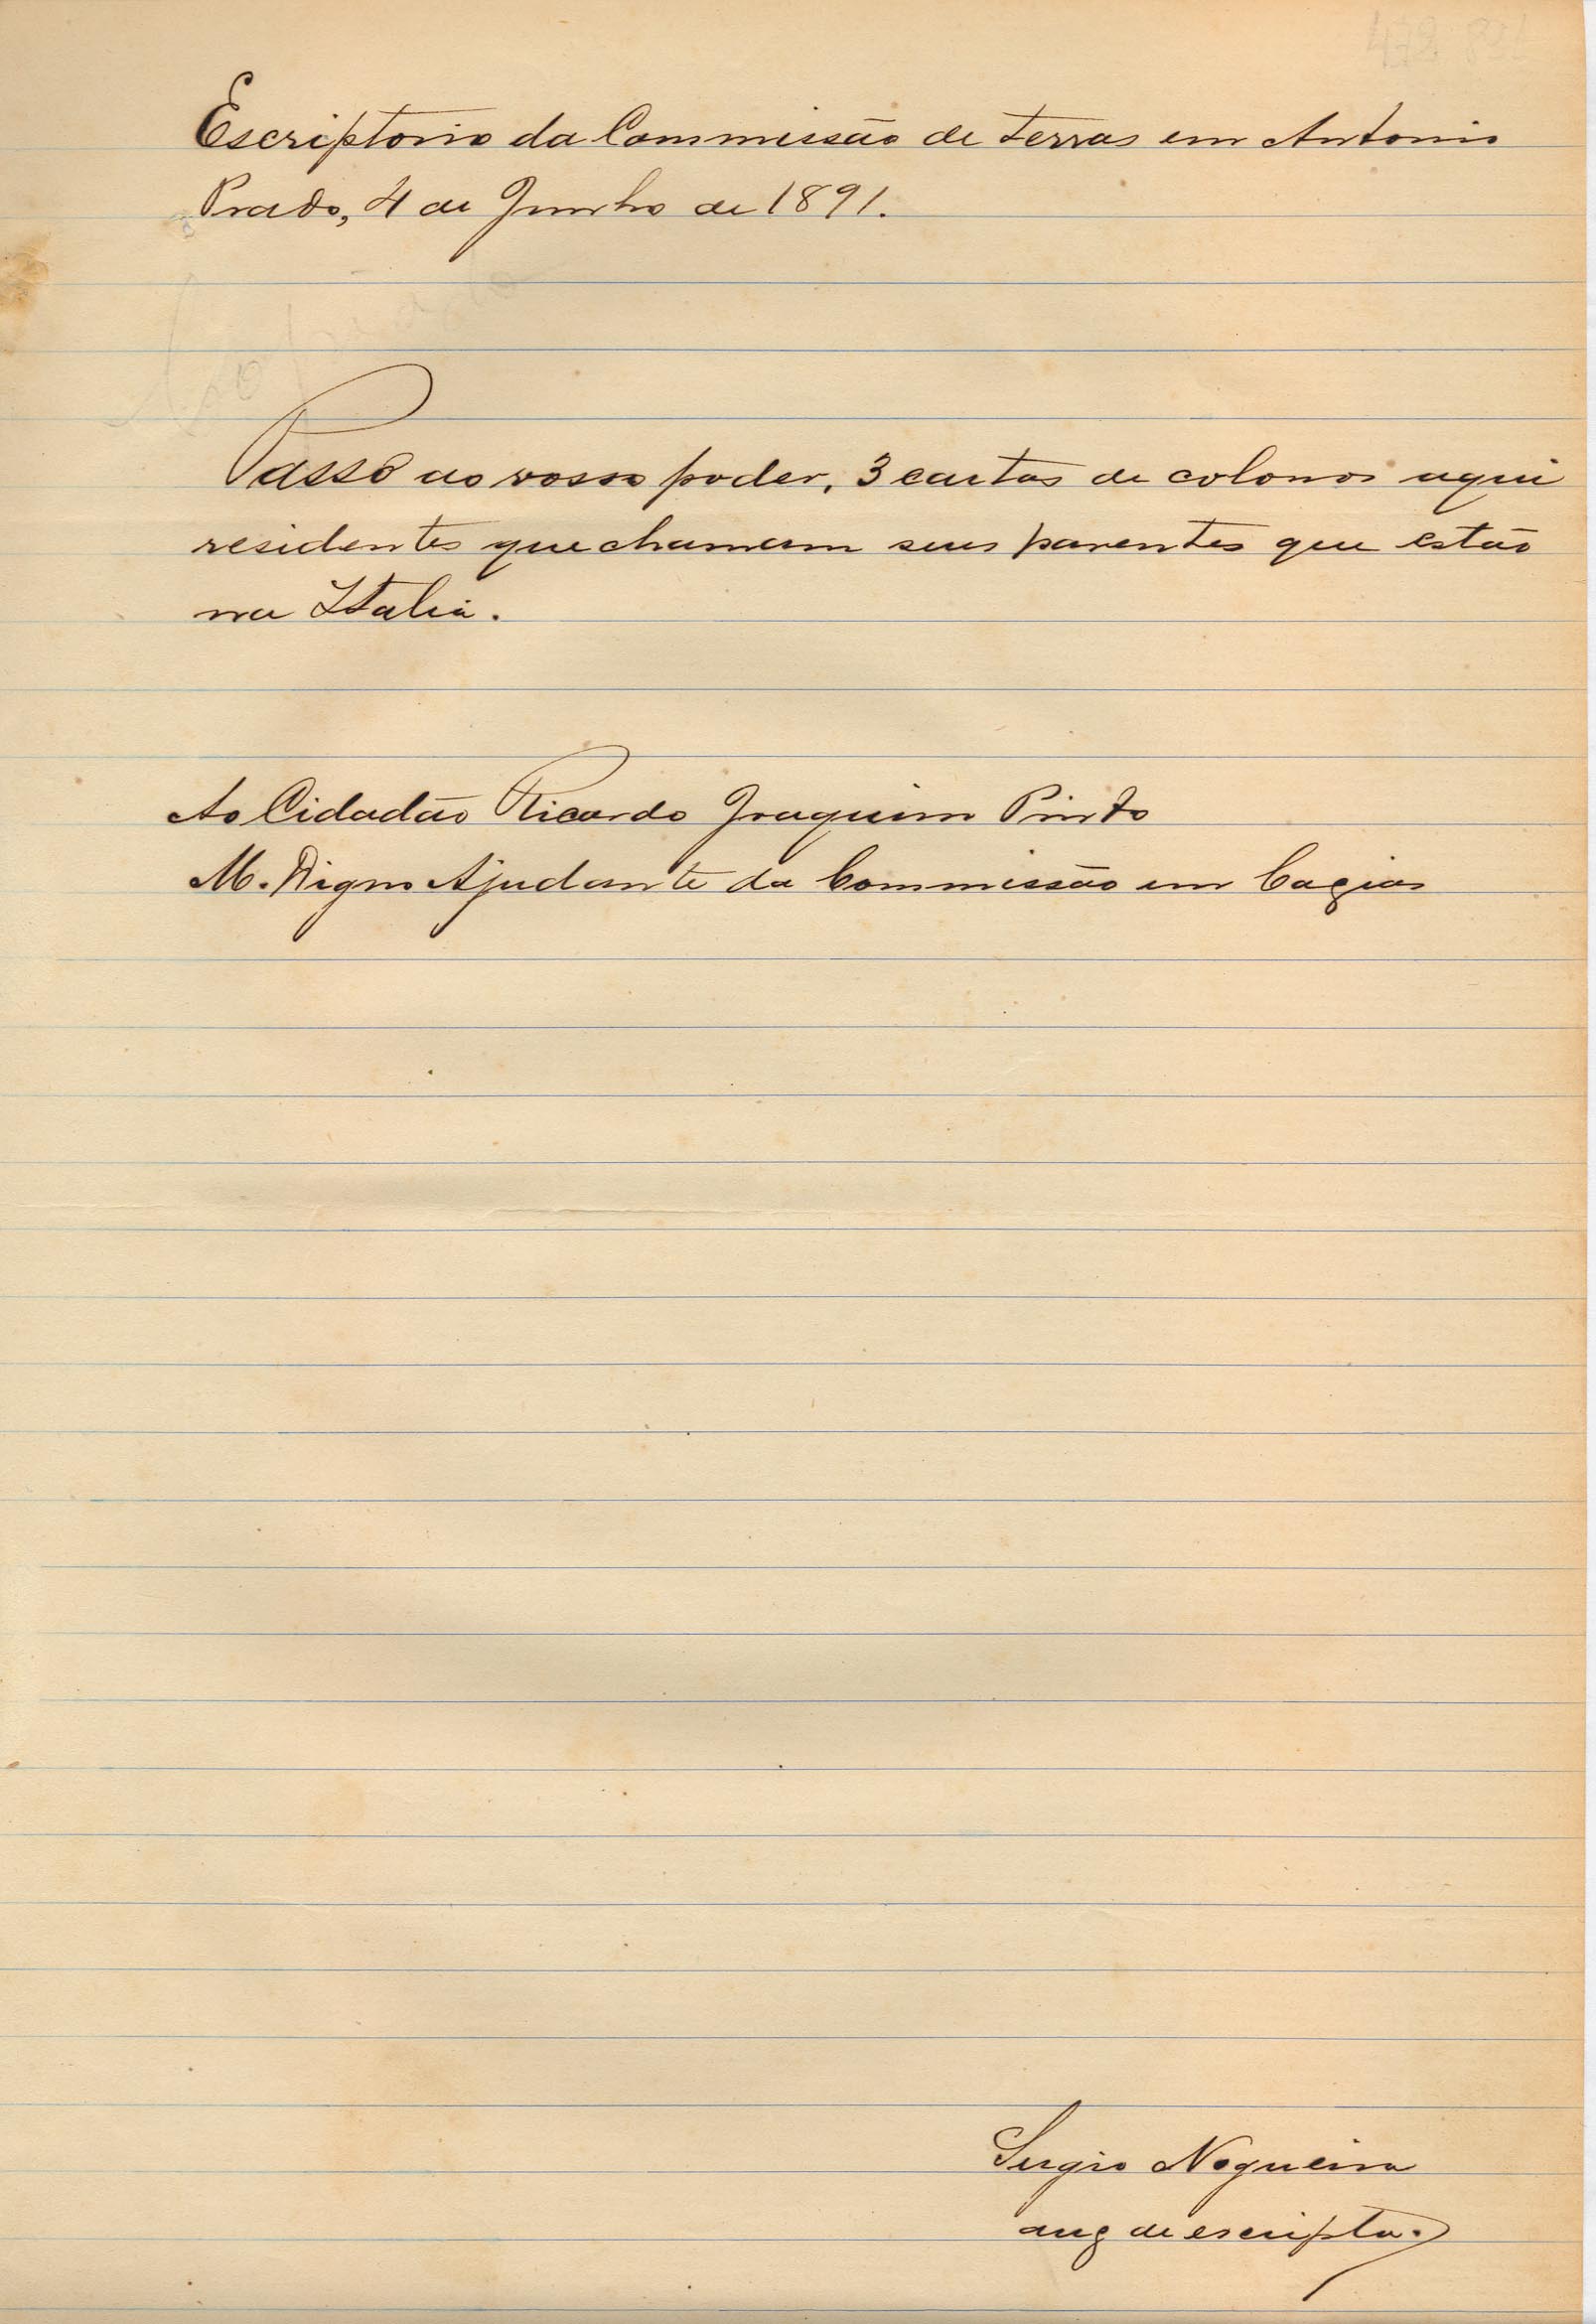 Escriptorio da Commissão de terras em Antonio
Prado, 4 de Junho de 1891.
Passo ao vosso poder, 3 cartas de colonos aqui
residentes que chamam seus parentes que estão
na Italia.
Ao Cidadão Ricardo Joaquim Pinto
M. Digno Ajudante da Commissão em Caxias
Sergio Nogueira
aux de escripta.